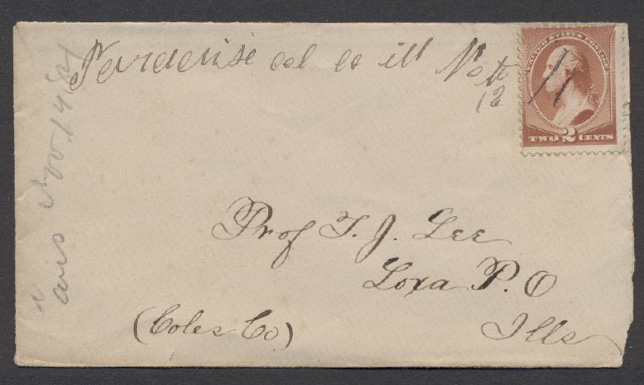 Paradise col co ill Nov
12
UNITED STATES POSTAGE
TWO 2 CENTS
Prof T. J. Lee
Loxa P.O
(Coles Co) Ills
ans Nov 14